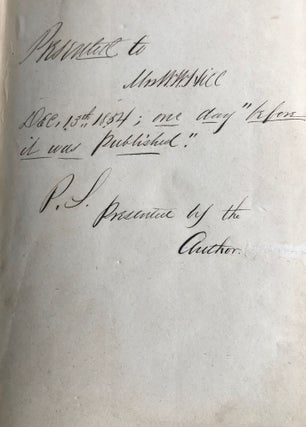 Presented to
Mrs W. W. Hill
Dec. 13th, 1854; one day "before
it was Published".
P. S.
Presented by the
Author.